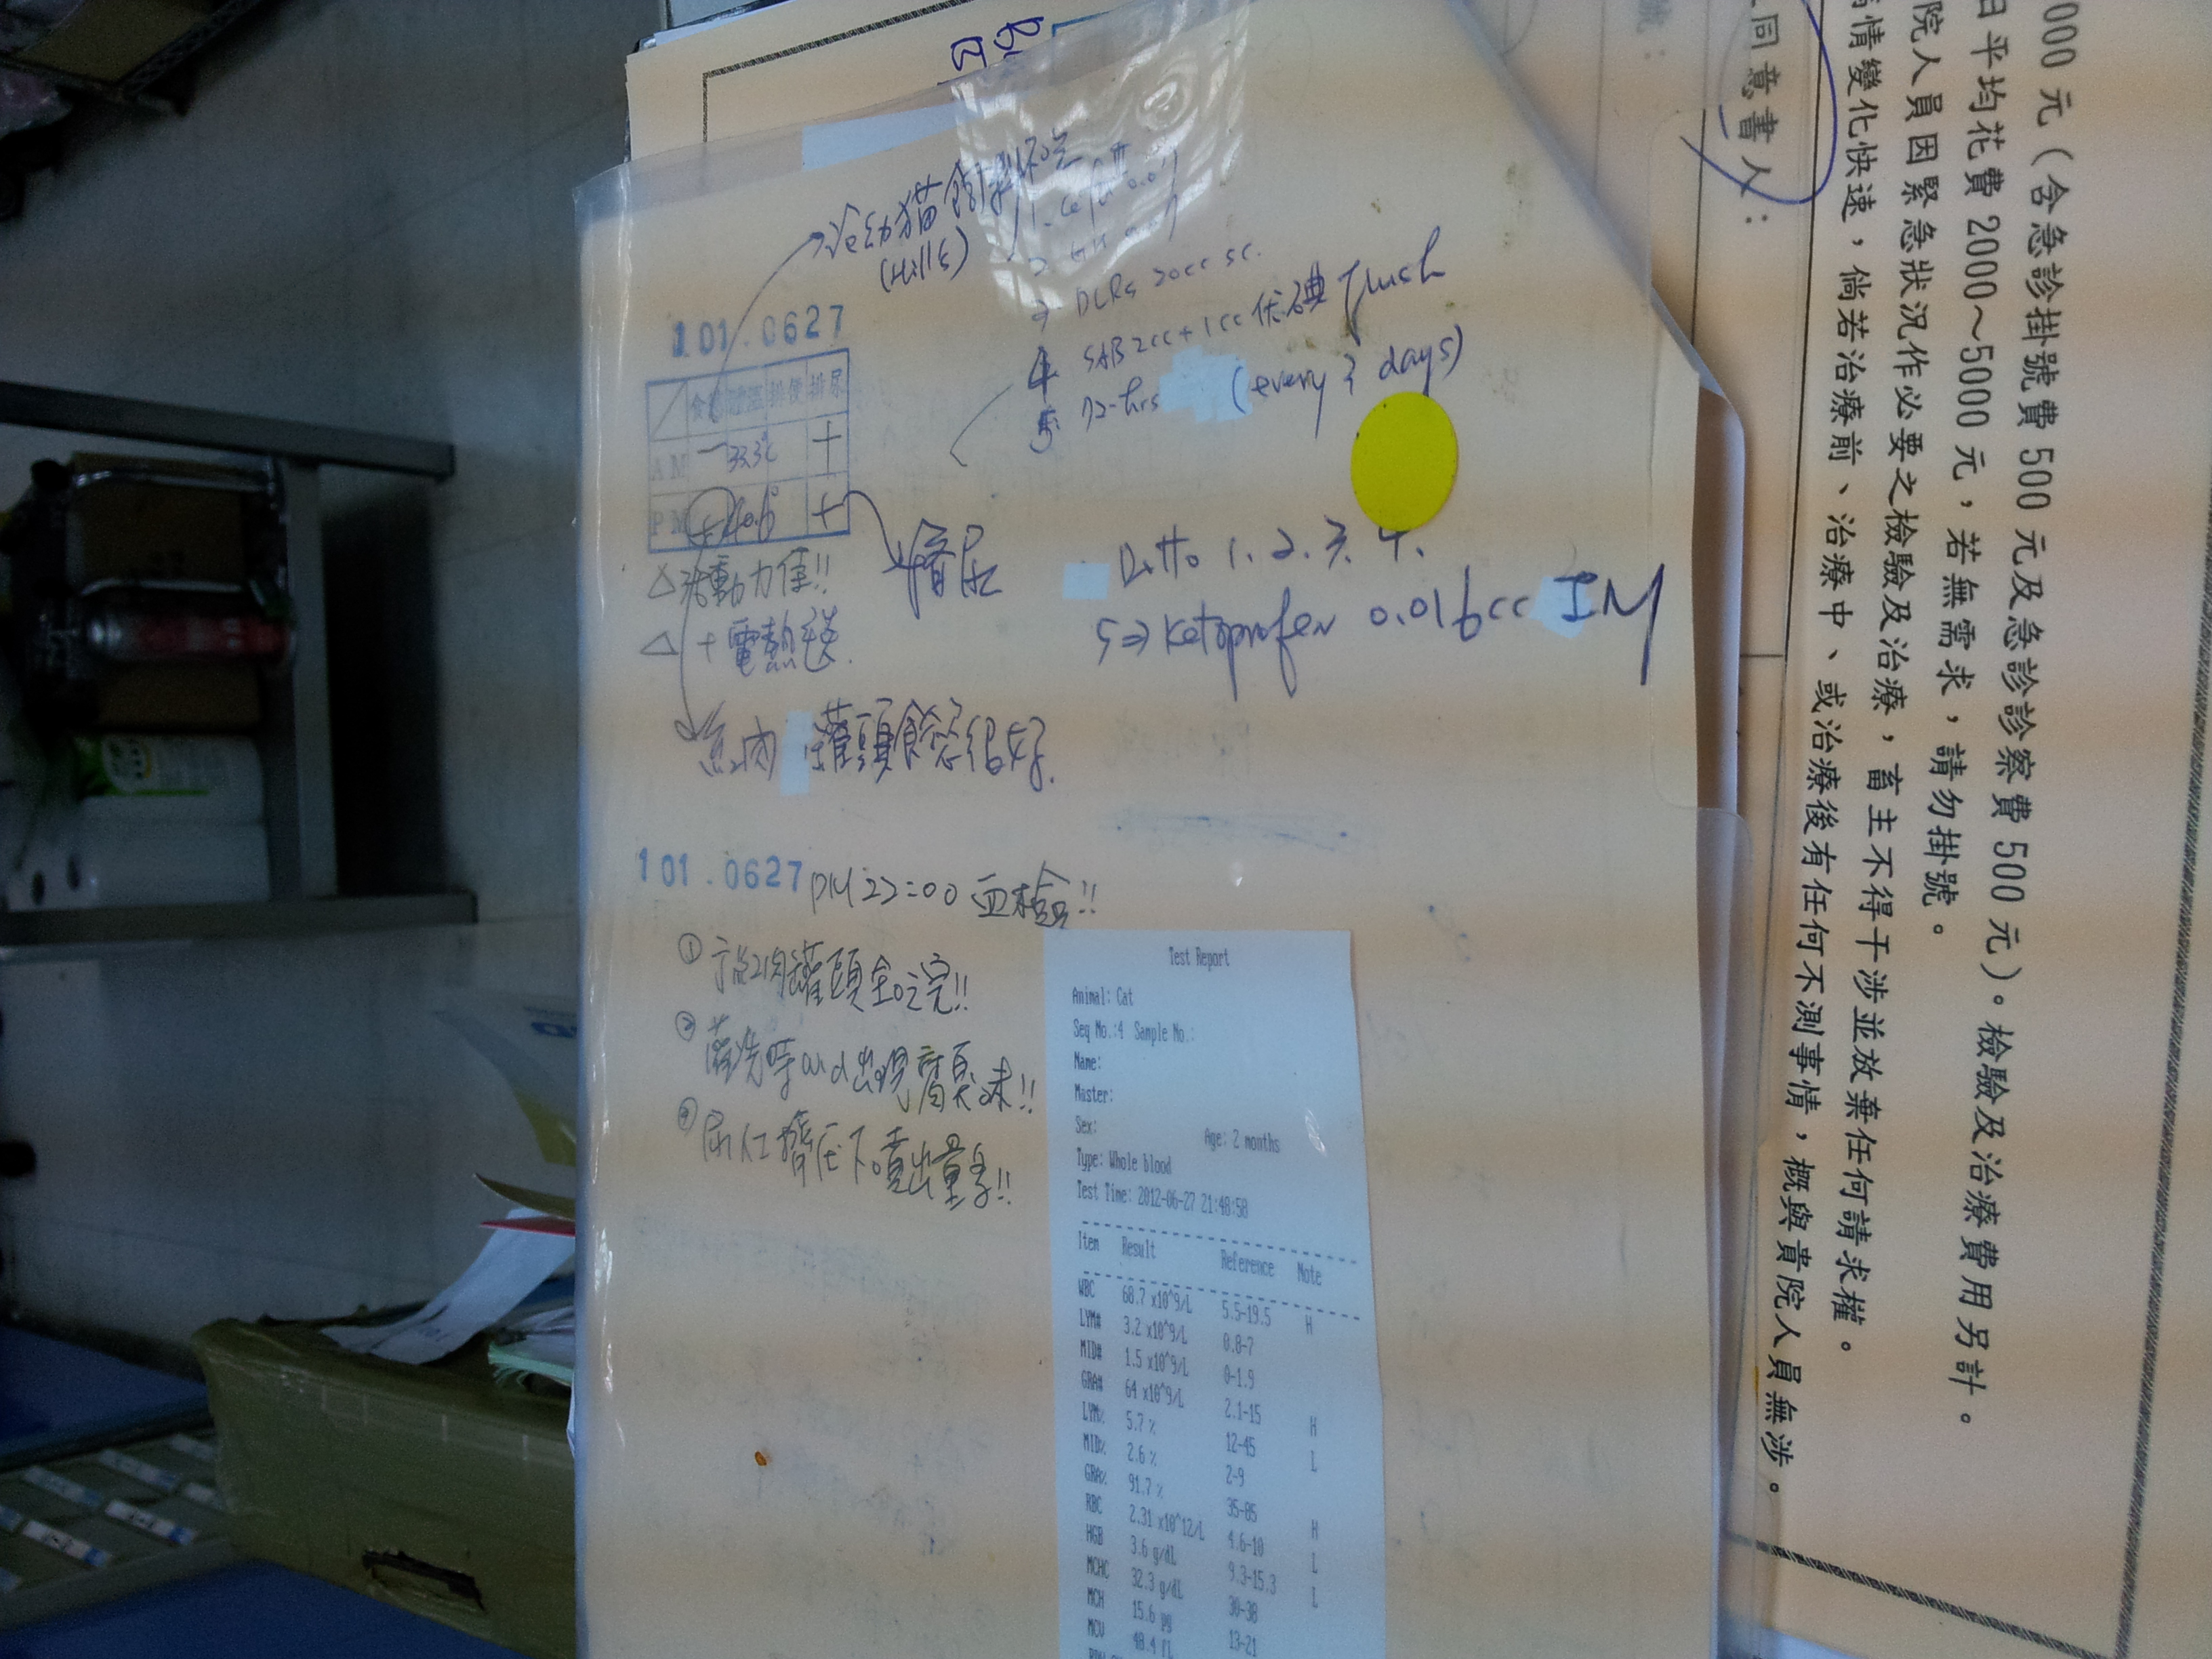 (Hill's)
DLRs 20cc sc.
4 SAB 2cc + 1cc 伏碘 flush
5. 12-hrs (every 3 days)
101.0627
食慾 排便 排尿
AM 一 33.3℃ +
PM + +
△ 活動力佳!!
△ +電熱毯
擠尿
Ditto 1. 2. 3. 4.
5 => Ketoprofen 0.016cc IM
魚肉 罐頭食慾很好.
101.0627 PM 22:00 血檢!!
① 罐頭全吃完!!
出現腐臭味!!
擠壓下噴出量多!!
Test Report
Animal: Cat
Seq No.:4 Sample No.:
Name:
Master:
Sex: Age: 2 months
Type: Whole blood
Test Time: 2012-06-27 21:48:50
Item Result Reference Note
WBC 68.7 x10^9/L 5.5-19.5 H
LYM# 3.2 x10^9/L 0.8-7
MID# 1.5 x10^9/L 0-1.9
GRA# 64 x10^9/L 2.1-15 H
LYM% 5.7 % 12-45 L
MID% 2.6 % 2-9
GRA% 91.7 % 35-85 H
RBC 2.31 x10^12/L 4.6-10 L
HGB 3.6 g/dL 9.3-15.3 L
MCHC 32.3 g/dL 30-38
MCH 15.6 pg 13-21
MCV 48.4 fL
000 元(含急診掛號費 500 元及急診診察費 500 元)。檢驗及治療費用另計。
日平均花費 2000~5000 元,若無需求,請勿掛號。
院人員因緊急狀況作必要之檢驗及治療,畜主不得干涉並放棄任何請求權。
病情變化快速,倘若治療前、治療中、或治療後有任何不測事情,概與貴院人員無涉。
同意書人: